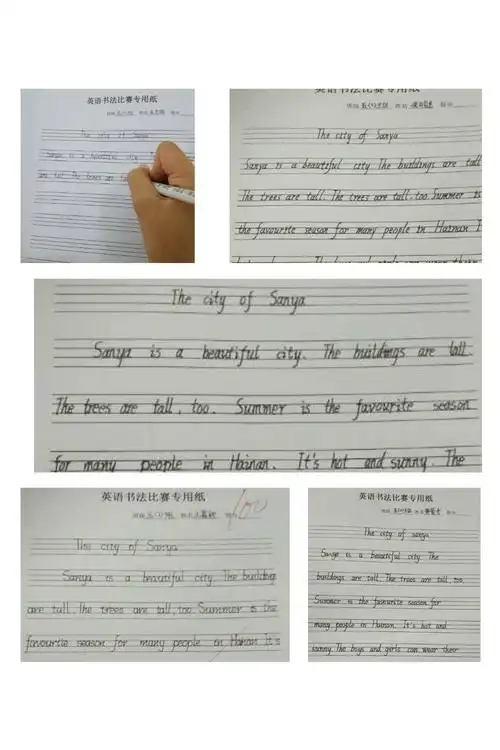 英语书法比赛专用纸
The city of Sanya
Sanya is a beautiful city
are tall. The trees are
英语书法比赛专用纸
The city of Sanya
Sanya is a beautiful city The buildings are tall
The trees are tall. The trees are tall, too. Summer is
the favourite season for many people in Hainan I
The city of Sanya
Sanya is a beautiful city. The buildings are tall.
The trees are tall, too. Summer is the favourite season
for many people in Hainan. It's hot and sunny. The
英语书法比赛专用纸
100
The city of Sanya
Sanya is a beautiful city. The building
are tall. The trees are tall, too. Summer is the
favourite season for many people in Hainan It's
英语书法比赛专用纸
The city of sanya
Sanya is a beautiful city The
buildings are tall. The trees are tall, too.
Summer is the favourite season for
many people in Hainan. It's hot and
sunny The boys and girls can wear their